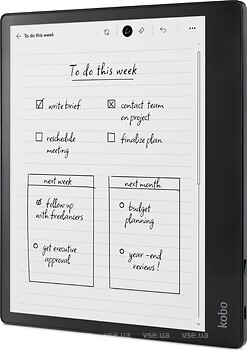 To do this week
To do this week
write brief
contact team
on project
reschedule
meeting
finalize plan
next week
follow up
with freelancers
get executive
approval
next month
budget
planning
year-end
reviews!
kobo
vse.ua vse.ua vse.ua